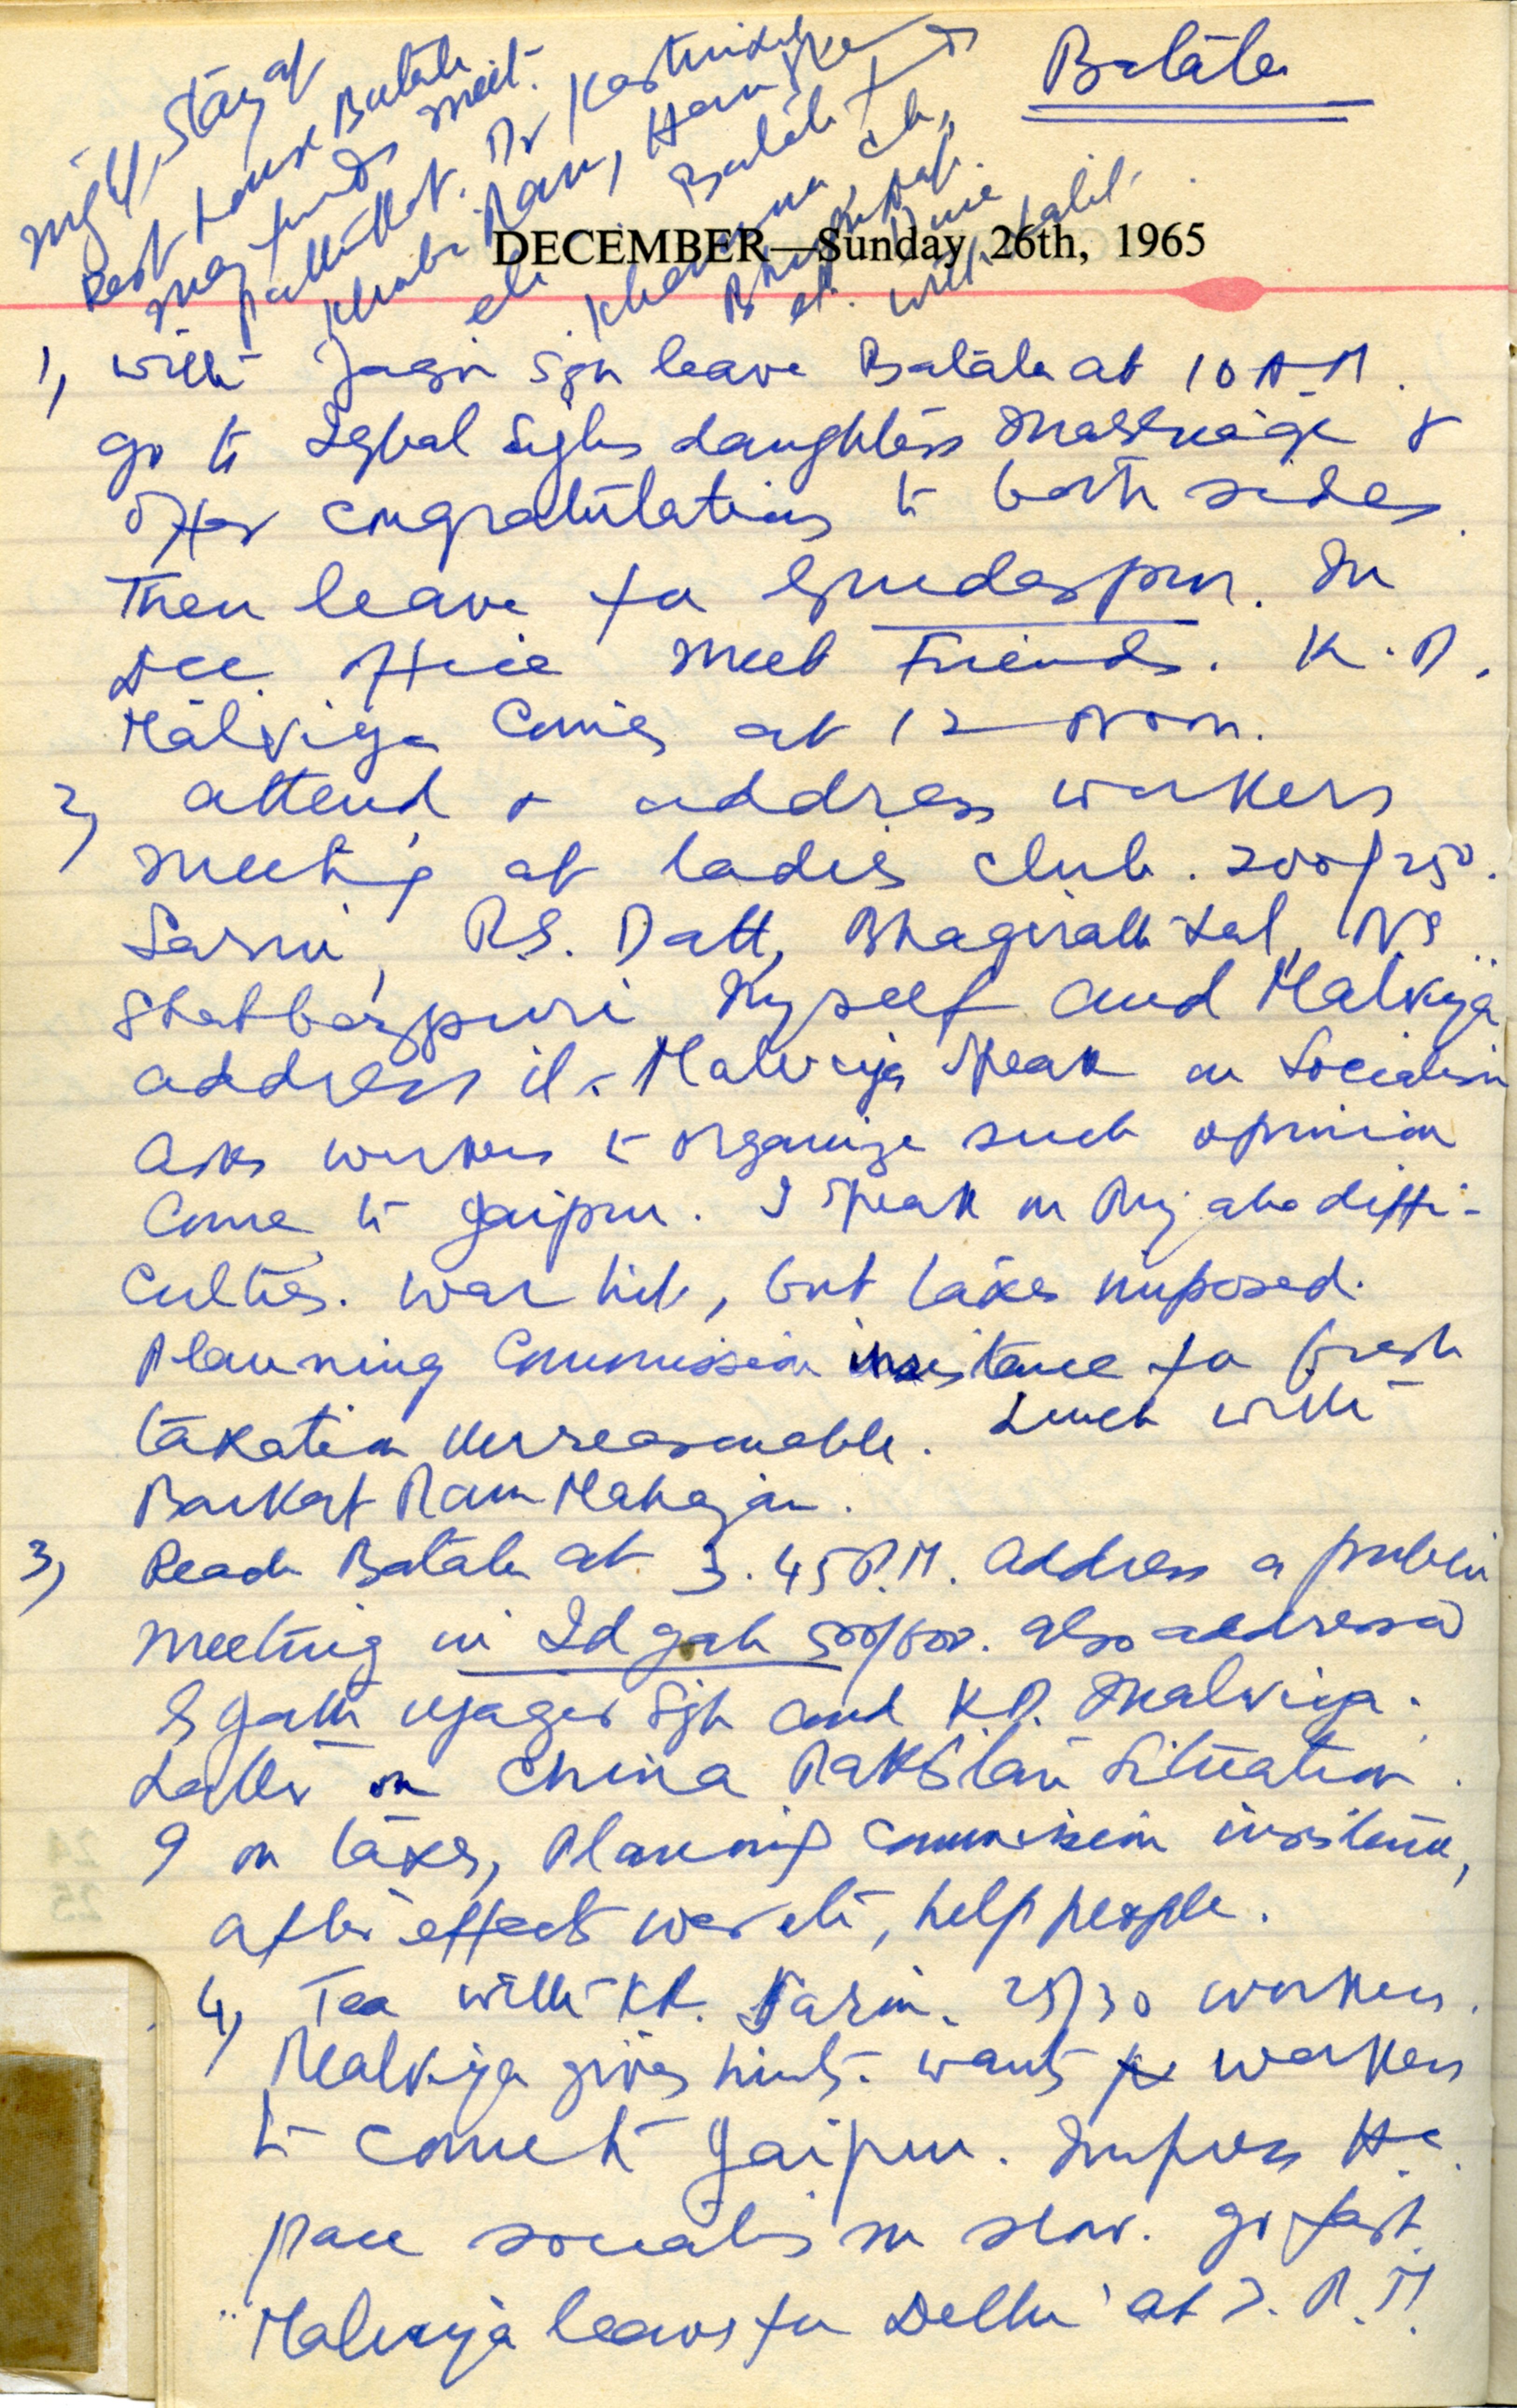 Batala
night stay at
Rest House Batala
many friends meet.
DECEMBER—Sunday 26th, 1965
1, with Sgh leave Batala at 10 A.M.
go to Iqbal Sighs daughters marriage &
offer congratulations to both sides.
Then leave for Gurdaspur. In
DCC office meet friends. K. D.
Malviya comes at 12 noon.
2, attend & address workers
meeting at ladies club. 200/250.
Sarin, R.S. Datt, Bhagirath Lal, NS
Shahbazpuri Myself and Malviya
address it. Malviya speak on Socialism
asks workers to organize such opinion
come to Jaipur. I speak on diffi-
culties. war hit, but taxes imposed.
Planning Commission insistence for fresh
taxation unreasonable. Lunch with
Barkat Ram Mahajan.
3, Reach Batala at 3.45 P.M. address a public
meeting in Idgah 500/600. also addressed
Ujagar Sgh and K.D. Malviya.
Latter on China Pakistan Situation.
I on taxes, Planning Commission insistence,
after effects war etc, help people.
4, Tea with Sarin. 25/30 workers.
Malviya gives hints. wants workers
to come to Jaipur. Impress
pace socialism slow. go fast.
Malviya leaves for Delhi at 7. P.M.